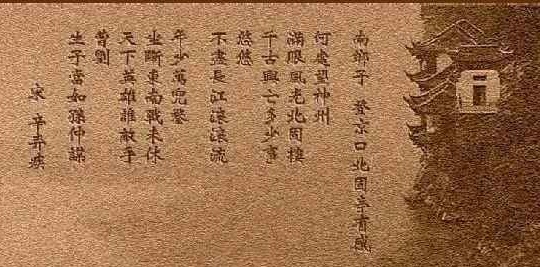 南鄉子 登京口北固亭有感
何處望神州
滿眼風光北固樓
千古興亡多少事
悠悠
不盡長江滾滾流
年少萬兜鍪
坐斷東南戰未休
天下英雄誰敵手
曹劉
生子當如孫仲謀
宋 辛弃疾